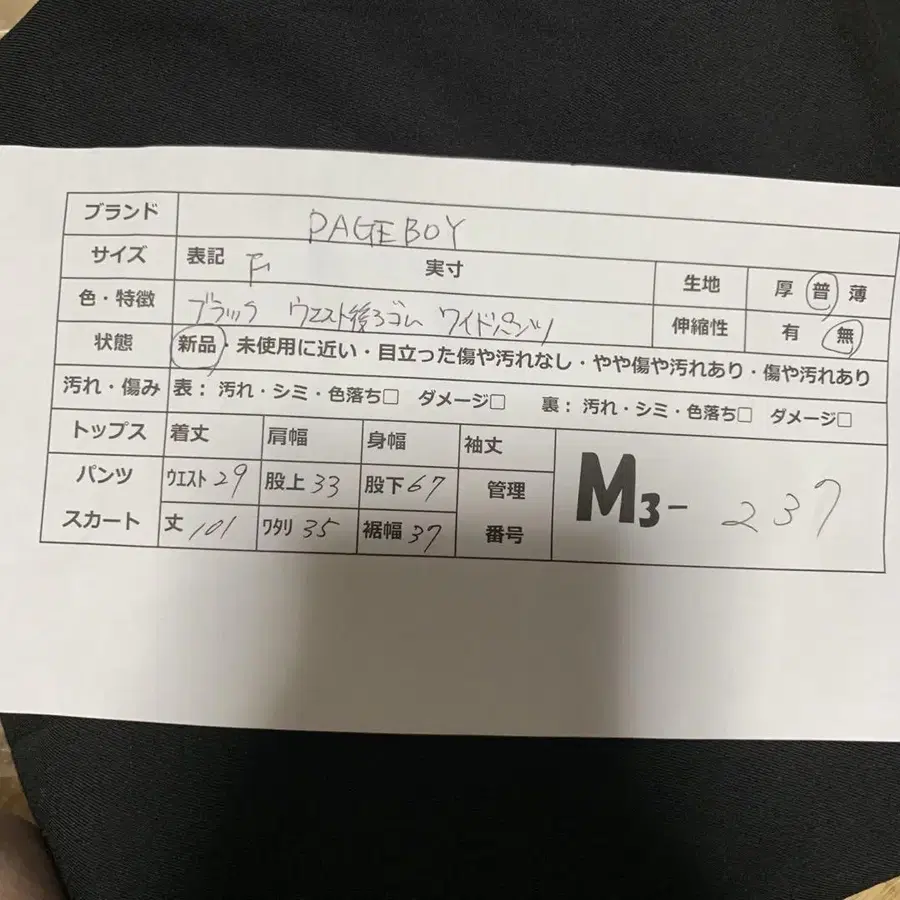 ブランド PAGEBOY
サイズ 表記 F 実寸 生地 厚 普 薄
色・特徴 ブラック ウエスト後ろゴム ワイドパンツ 伸縮性 有 無
状態 新品・未使用に近い・目立った傷や汚れなし・やや傷や汚れあり・傷や汚れあり
汚れ・傷み 表：汚れ・シミ・色落ち□ ダメージ□ 裏：汚れ・シミ・色落ち□ ダメージ□
トップス 着丈 肩幅 身幅 袖丈
パンツ ウエスト 29 股上 33 股下 67 管理
スカート 丈 101 ワタリ 35 裾幅 37 番号
M3- 237